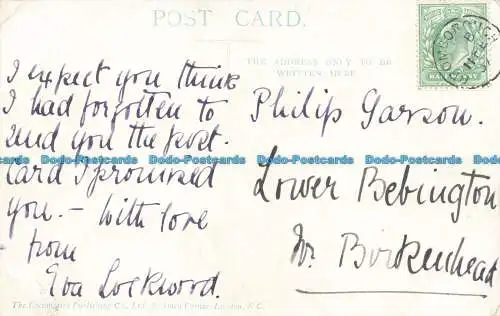 POST CARD.
THE ADDRESS ONLY TO BE
WRITTEN HERE
I expect you think
I had forgotten to
send you the post-
card I promised
you. — With love
from
Eva Lockwood.
Philip Garson.
Lower Bebington
Nr. Birkenhead
Dodo-Postcards Dodo-Postcards Dodo-Postcards Dodo-Postcards Dodo-Postcards
Publishing Co., London, E.C.